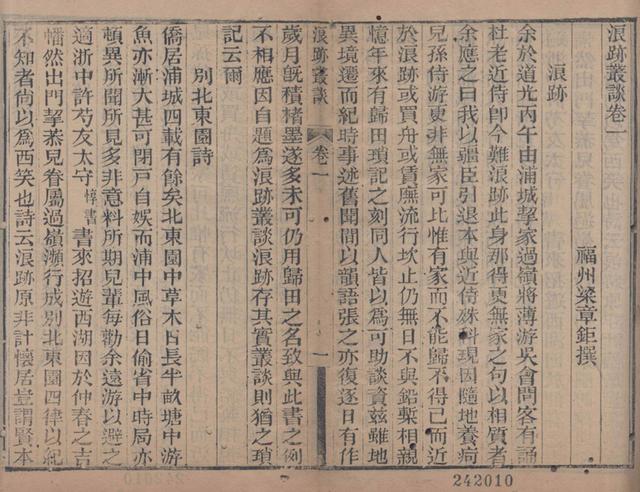 浪跡叢談卷一
福州梁章鉅撰
浪跡
余於道光丙午由浦城挈家過嶺將薄游吳會問客有誦
杜老近侍即今難浪跡此身那得更無家之句以相質者
余應之曰我以疆臣引退本與近侍殊科現因隨地養疴
兒孫侍游更非無家可比惟有家而不能歸不得已而近
於浪跡或買舟或賃廡流行坎止仍無日不與鉛槧相親
憶年來有歸田瑣記之刻同人皆以為可助談資茲雖地
異境遷而紀時事述舊聞間以韻語張之亦復逐日有作
浪跡叢談
卷一
一
歲月既積楮墨遂多未可仍用歸田之名致與此書之例
不相應因自題為浪跡叢談浪跡存其實叢談則猶之瑣
記云爾
別北東園詩
僑居浦城四載有餘矣北東園中草木日長半畝塘中游
魚亦漸大甚可閉戶自娛而浦中風俗日偷省中時局亦
頓異所聞所見多非意料所期兒輩每勸余遠游以避之
適浙中許芍友太守惇書書來招遊西湖因於仲春之吉
幡然出門挈恭兒眷屬過嶺瀕行成別北東園四律以紀
不知者尚以為西笑也詩云浪跡原非計懷居豈謂賢本
242010